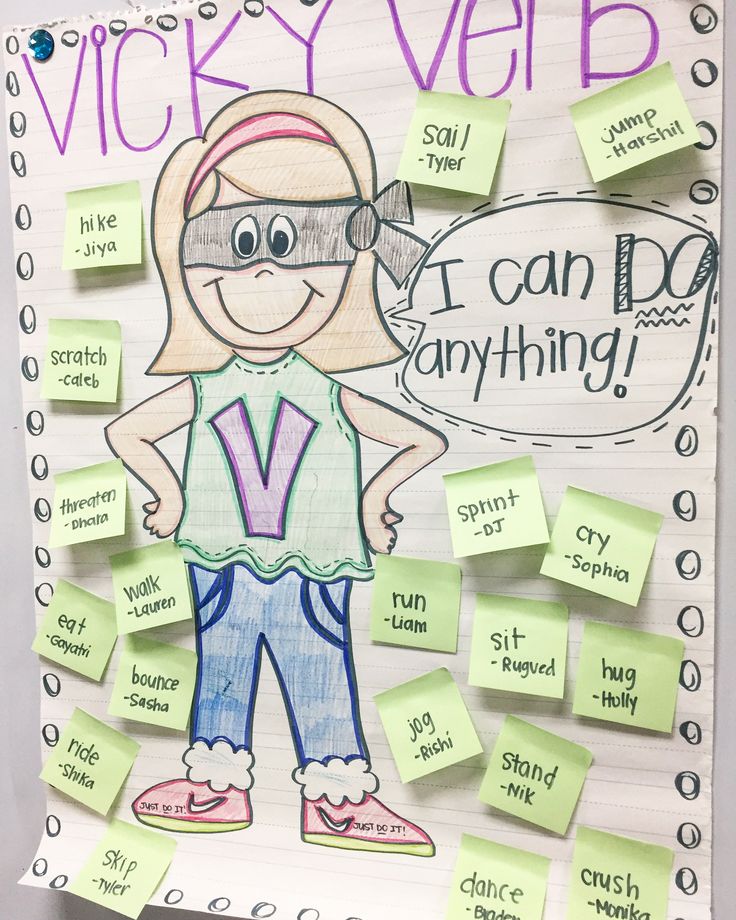 Vicky Verb
sail
-Tyler
jump
-Harshil
hike
-Jiya
I can DO
anything!
scratch
-caleb
threaten
-Dhara
sprint
-DJ
cry
-Sophia
walk
-Lauren
run
-Liam
eat
-Gayatri
sit
-Rugved
bounce
-Sasha
hug
-Holly
jog
-Rishi
ride
-Shika
stand
-Nik
V
JUST DO IT!
JUST DO IT!
skip
-Tyler
dance
-Braden
crush
-Monika